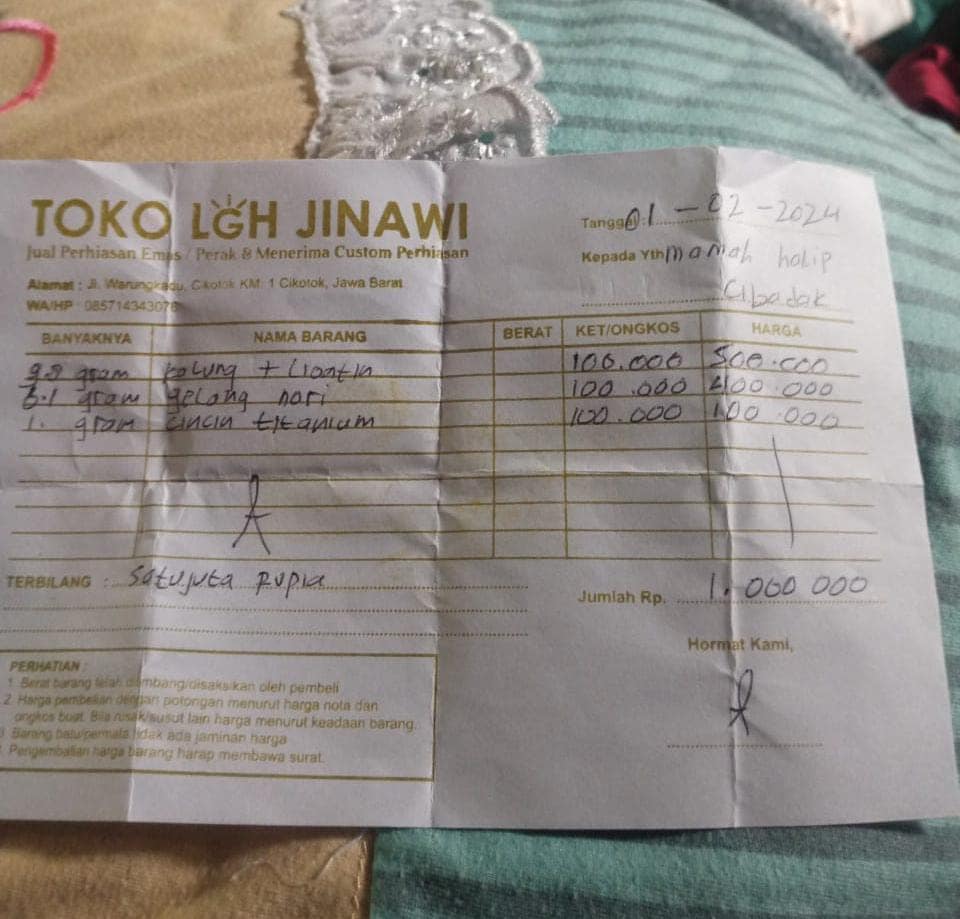 TOKO LGH JINAWI
Jual Perhiasan Emas / Perak & Menerima Custom Perhiasan
Alamat : Jl. Warungkadu, Cikotok KM. 1 Cikotok, Jawa Barat
WA/HP : 085714343078
Tanggal : 01-02-2024
Kepada Yth mamah holip
Cibadak
BANYAKNYA NAMA BARANG BERAT KET/ONGKOS HARGA
gram kalung + 100.000 500.000
gram gelang nori 100.000 400.000
1. gram cincin titanium 100.000 100.000
TERBILANG : Satujuta rupia
Jumlah Rp. 1.000 000
Hormat Kami,
PERHATIAN :
1. Berat barang telah ditimbang/disaksikan oleh pembeli
2. Harga pembelian dengan potongan menurut harga nota dan
ongkos buat. Bila rusak/susut lain harga menurut keadaan barang.
3. Barang batu/permata tidak ada jaminan harga
4. Pengembalian harga barang harap membawa surat.